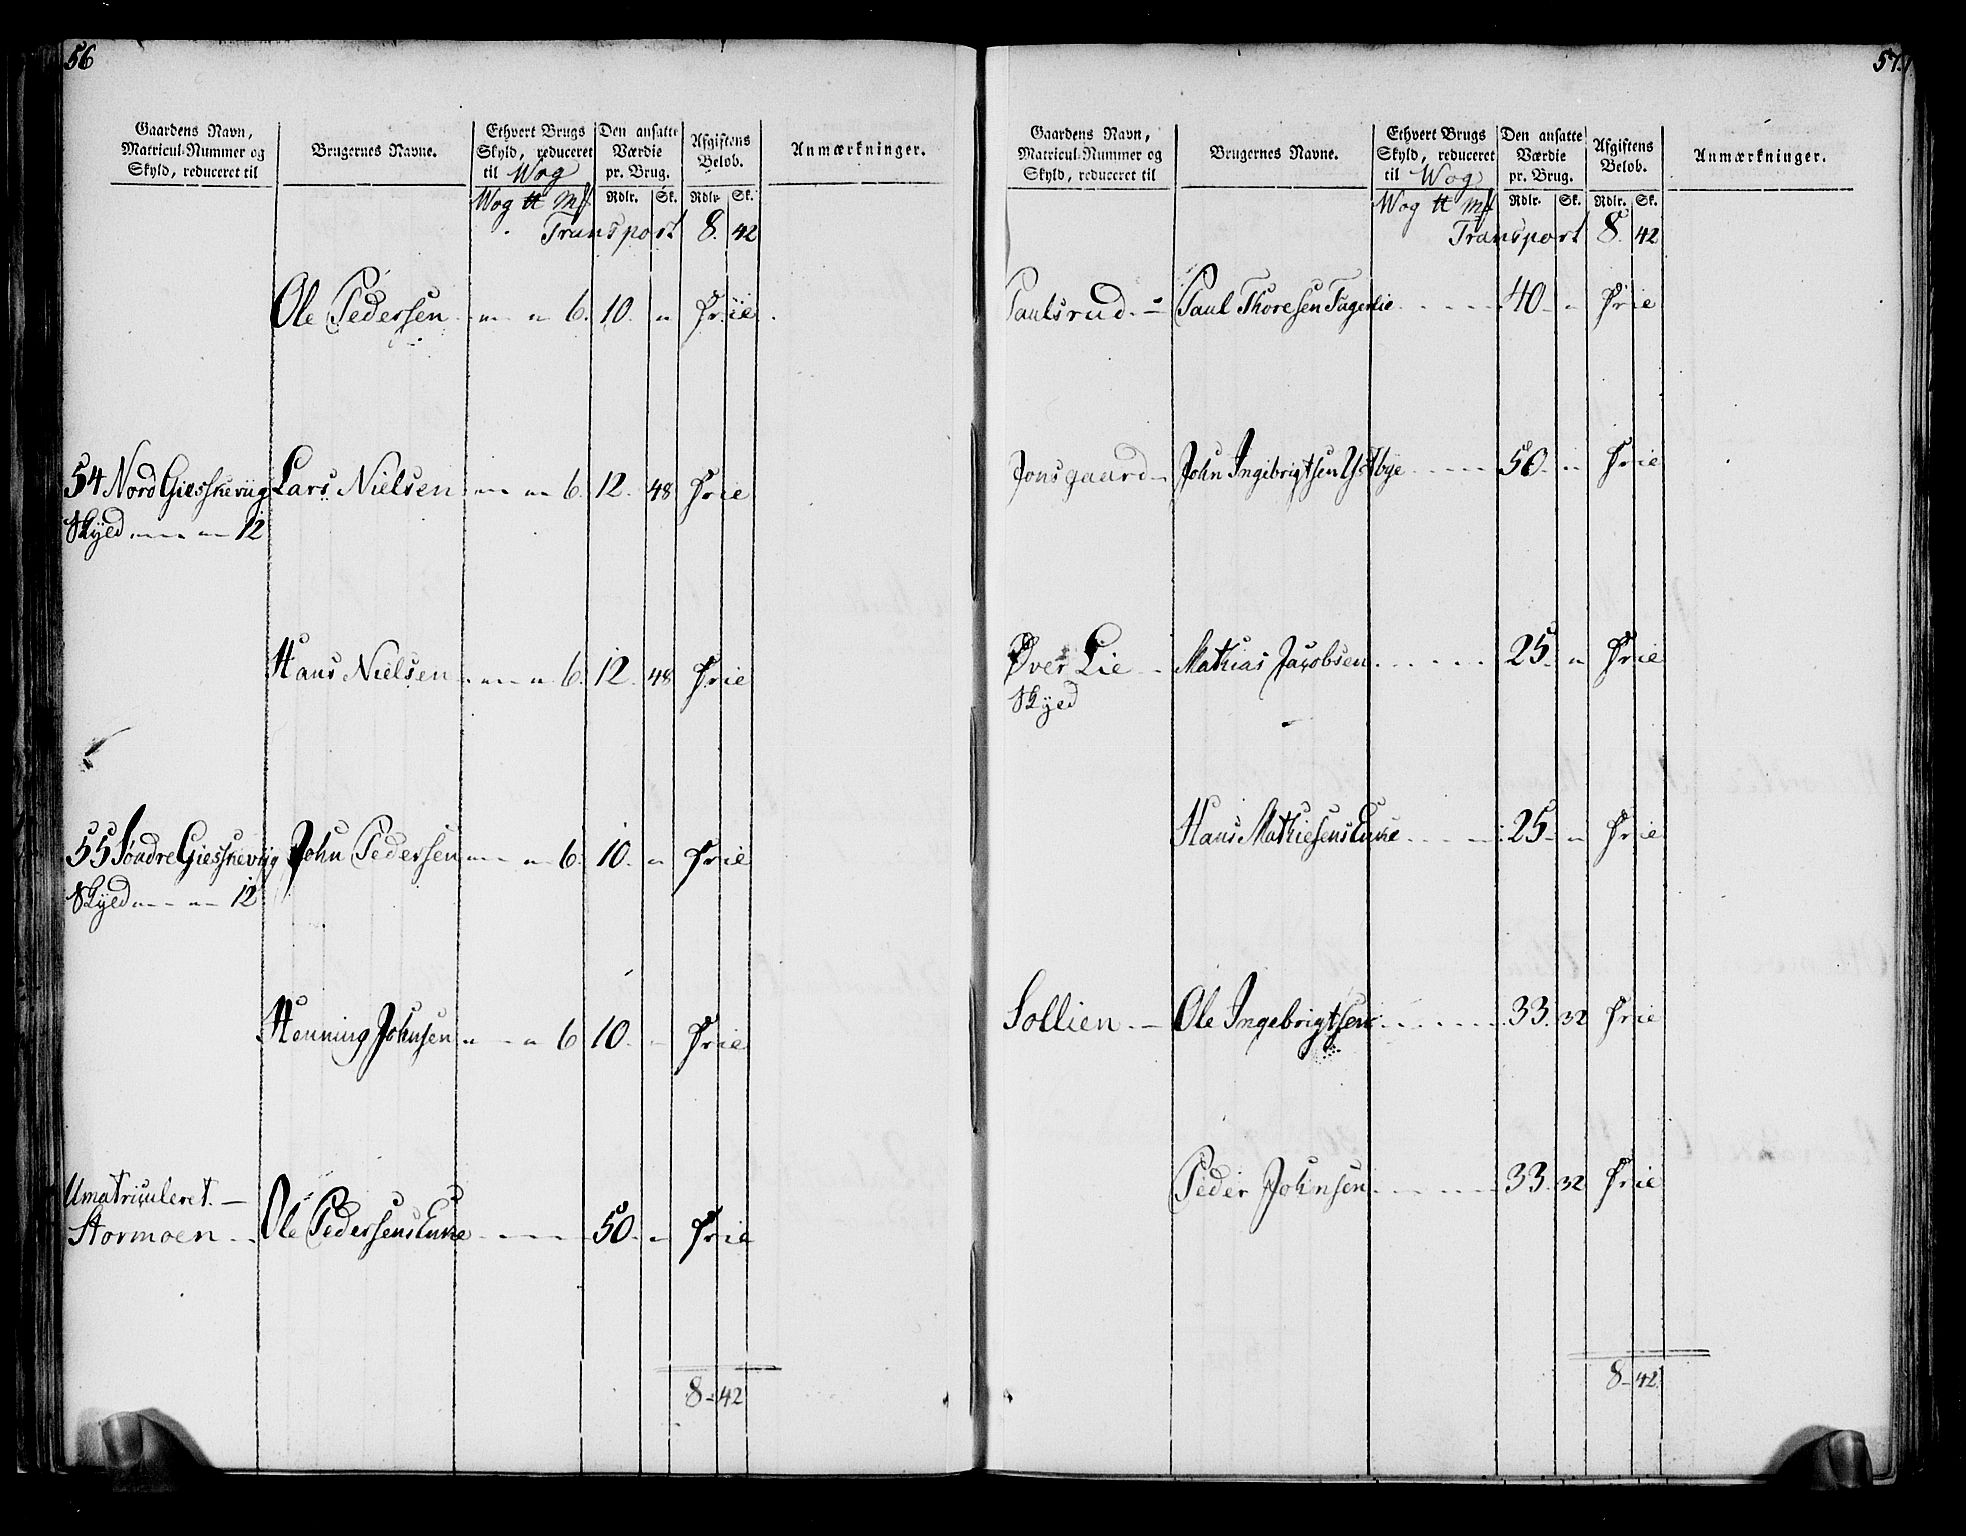 56
Gaardens Navn, Matricul-Nummer og Skyld, reduceret til
Brugernes Navne.
Ethvert Brugs Skyld, reduceret til Wog
Den ansatte Værdie pr. Brug.
Afgiftens Beløb.
Anmærkninger.
Wog ℔ Mk Rdlr. Sk. Rdlr. Sk.
Transport 8. 42
Ole Pedersen 6. 10. Frie
54 Nord Giesskeviig Lars Nielsen 6. 12. 48 Frie
Skyld 12
Hans Nielsen 6. 12. 48 Frie
55 Søndre Giesskeviig John Pedersen 6. 10. Frie
Skyld 12
Henning Johnsen 6 10. Frie
Umatriculeret.
Stormoen Ole Pedersens Enke 50. Frie
8 42
57.
Gaardens Navn, Matricul-Nummer og Skyld, reduceret til
Brugernes Navne.
Ethvert Brugs Skyld, reduceret til Wog
Den ansatte Værdie pr. Brug.
Afgiftens Beløb.
Anmærkninger.
Wog ℔ Mk Rdlr. Sk. Rdlr. Sk.
Transport 8. 42
Paulsrud Paul Thoresen Fagerlie 40. Frie
Jonsgaard John Ingibrigtsen Ystbye 50. Frie
Øver Lie Mathias Jacobsen 25. Frie
Skyld
Hans Mathiesens Enke 25. Frie
Sollien Ole Ingebrigtsen 33. 32 Frie
Peder Johnsen 33. 32 Frie
8 42